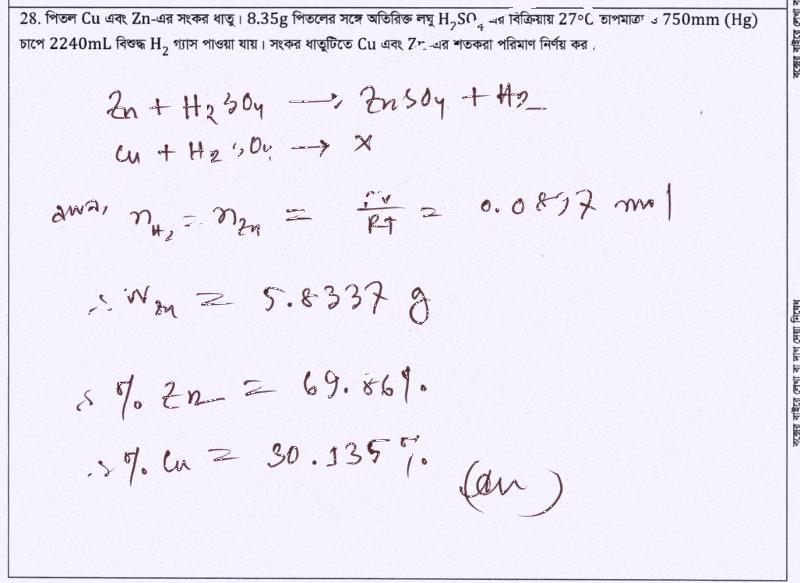 28. পিতল Cu এবং Zn-এর সংকর ধাতু। 8.35g পিতলের সঙ্গে অতিরিক্ত লঘু H₂SO₄ এর বিক্রিয়ায় 27°C তাপমাত্রা ও 750mm (Hg)
চাপে 2240mL বিশুদ্ধ H₂ গ্যাস পাওয়া যায়। সংকর ধাতুটিতে Cu এবং Zn-এর শতকরা পরিমাণ নির্ণয় কর।
Zn + H₂SO₄ → ZnSO₄ + H₂
Cu + H₂SO₄ → ×
n_H₂ = n_Zn = PV/RT = 0.0897 mol
∴ W_Zn = 5.8337 g
∴ % Zn = 69.86%
∴ % Cu = 30.135%
(Ans)